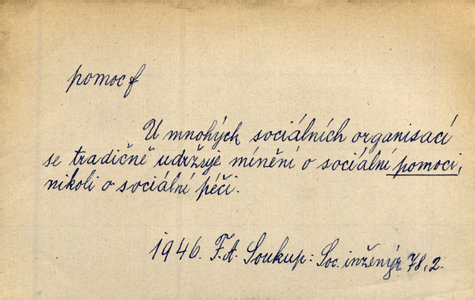 pomoc f
U mnohých sociálních organisací
se tradičně udržuje mínění o sociální pomoci,
nikoli o sociální péči.
1946. F.A. Soukup: Soc. inženýr 78,2.